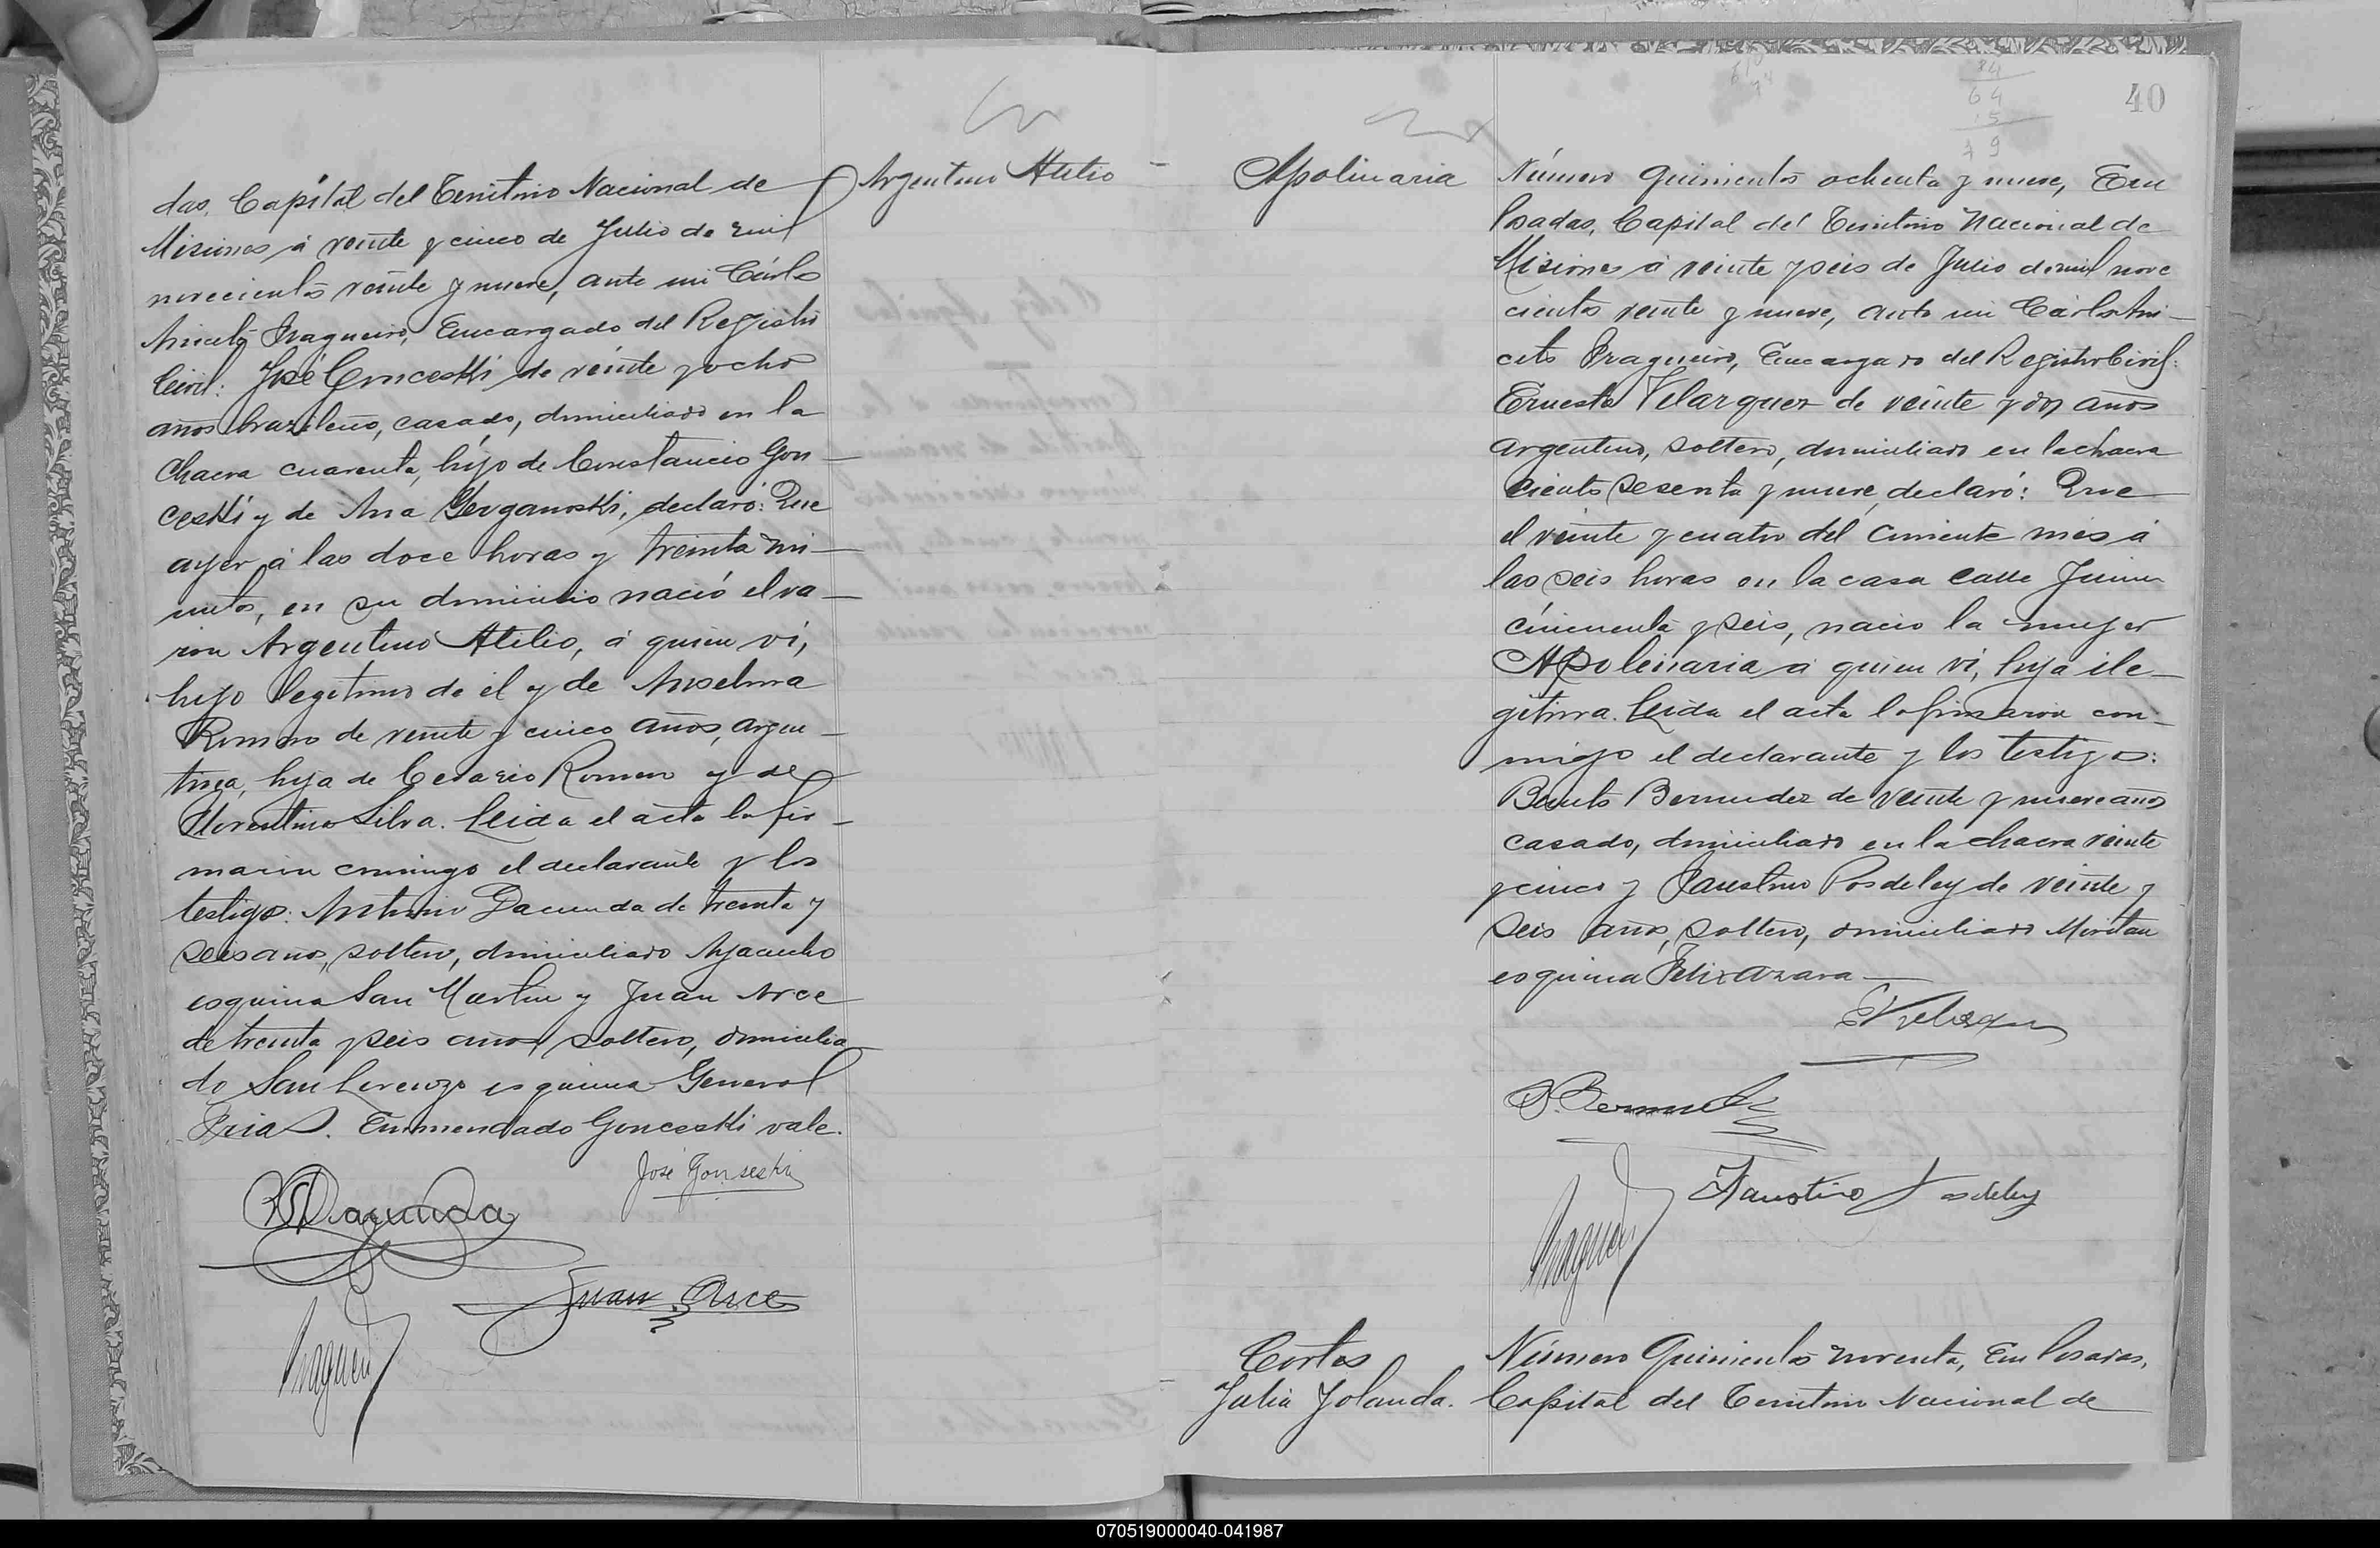 Argentino Atilio
das, Capital del Territorio Nacional de
Misiones á veinte y cinco de Julio de mil
novecientos veinte y nueve, ante mi Cárlos
Aniceto Fragueiro, Encargado del Registro
Civil: José Gonceski de veinte y ocho
años brazileño, casado, domiciliado en la
Chacra cuarenta, hijo de Constancio Gon-
ceski y de Ana Gerganoski, declaró: Que
ayer á las doce horas y treinta mi-
nutos, en su domicilio nació el va-
ron Argentino Atilio, á quien ví,
hijo legitimo de él y de Anselma
Romero de veinte y cinco años, argen-
tina, hija de Cesario Romero y de
Florentina Silva. Leida el acta la fir-
maron conmigo el declarante y los
testigos: Antonio Dacunda de treinta y
seis años, soltero, domiciliado Ayacucho
esquina San Martin y Juan Arce
de treinta y seis años, soltero, domicilia
do San Lorenzo esquina General
Frias. Enmendado Gonceski vale.
José Gonseski
Dacunda
Juan Arce
Fragueiro
40
84
64
15
79
Apolinaria
Número quinientos ochenta y nueve, En
Posadas, Capital del Territorio Nacional de
Misiones á veinte y seis de Julio de mil nove
cientos veinte y nueve, ante mi Cárlos Ani-
ceto Fragueiro, Encargado del Registro Civil:
Ernesto Velazquez de veinte y dos años
argentino, soltero, domiciliado en la chacra
ciento sesenta y nueve, declaró: Que
el veinte y cuatro del corriente mes á
las seis horas en la casa calle Junin
cincuenta y seis, nacio la mujer
Apolinaria a quien ví, hija ile-
gitima. Leida el acta la firmaron con-
migo el declarante y los testigos:
Benito Bermudez de veinte y nueve años
casado, domiciliado en la chacra veinte
y cinco y Faustino Posdeley de veinte y
seis años, soltero, domiciliado
esquina Felix Azara
E Velazquez
B. Bermudez
Faustino Posdeley
Fragueiro
Cortes
Julia Yolanda.
Número Quinientos noventa, En Posadas,
Capital del Territorio Nacional de
070519000040-041987